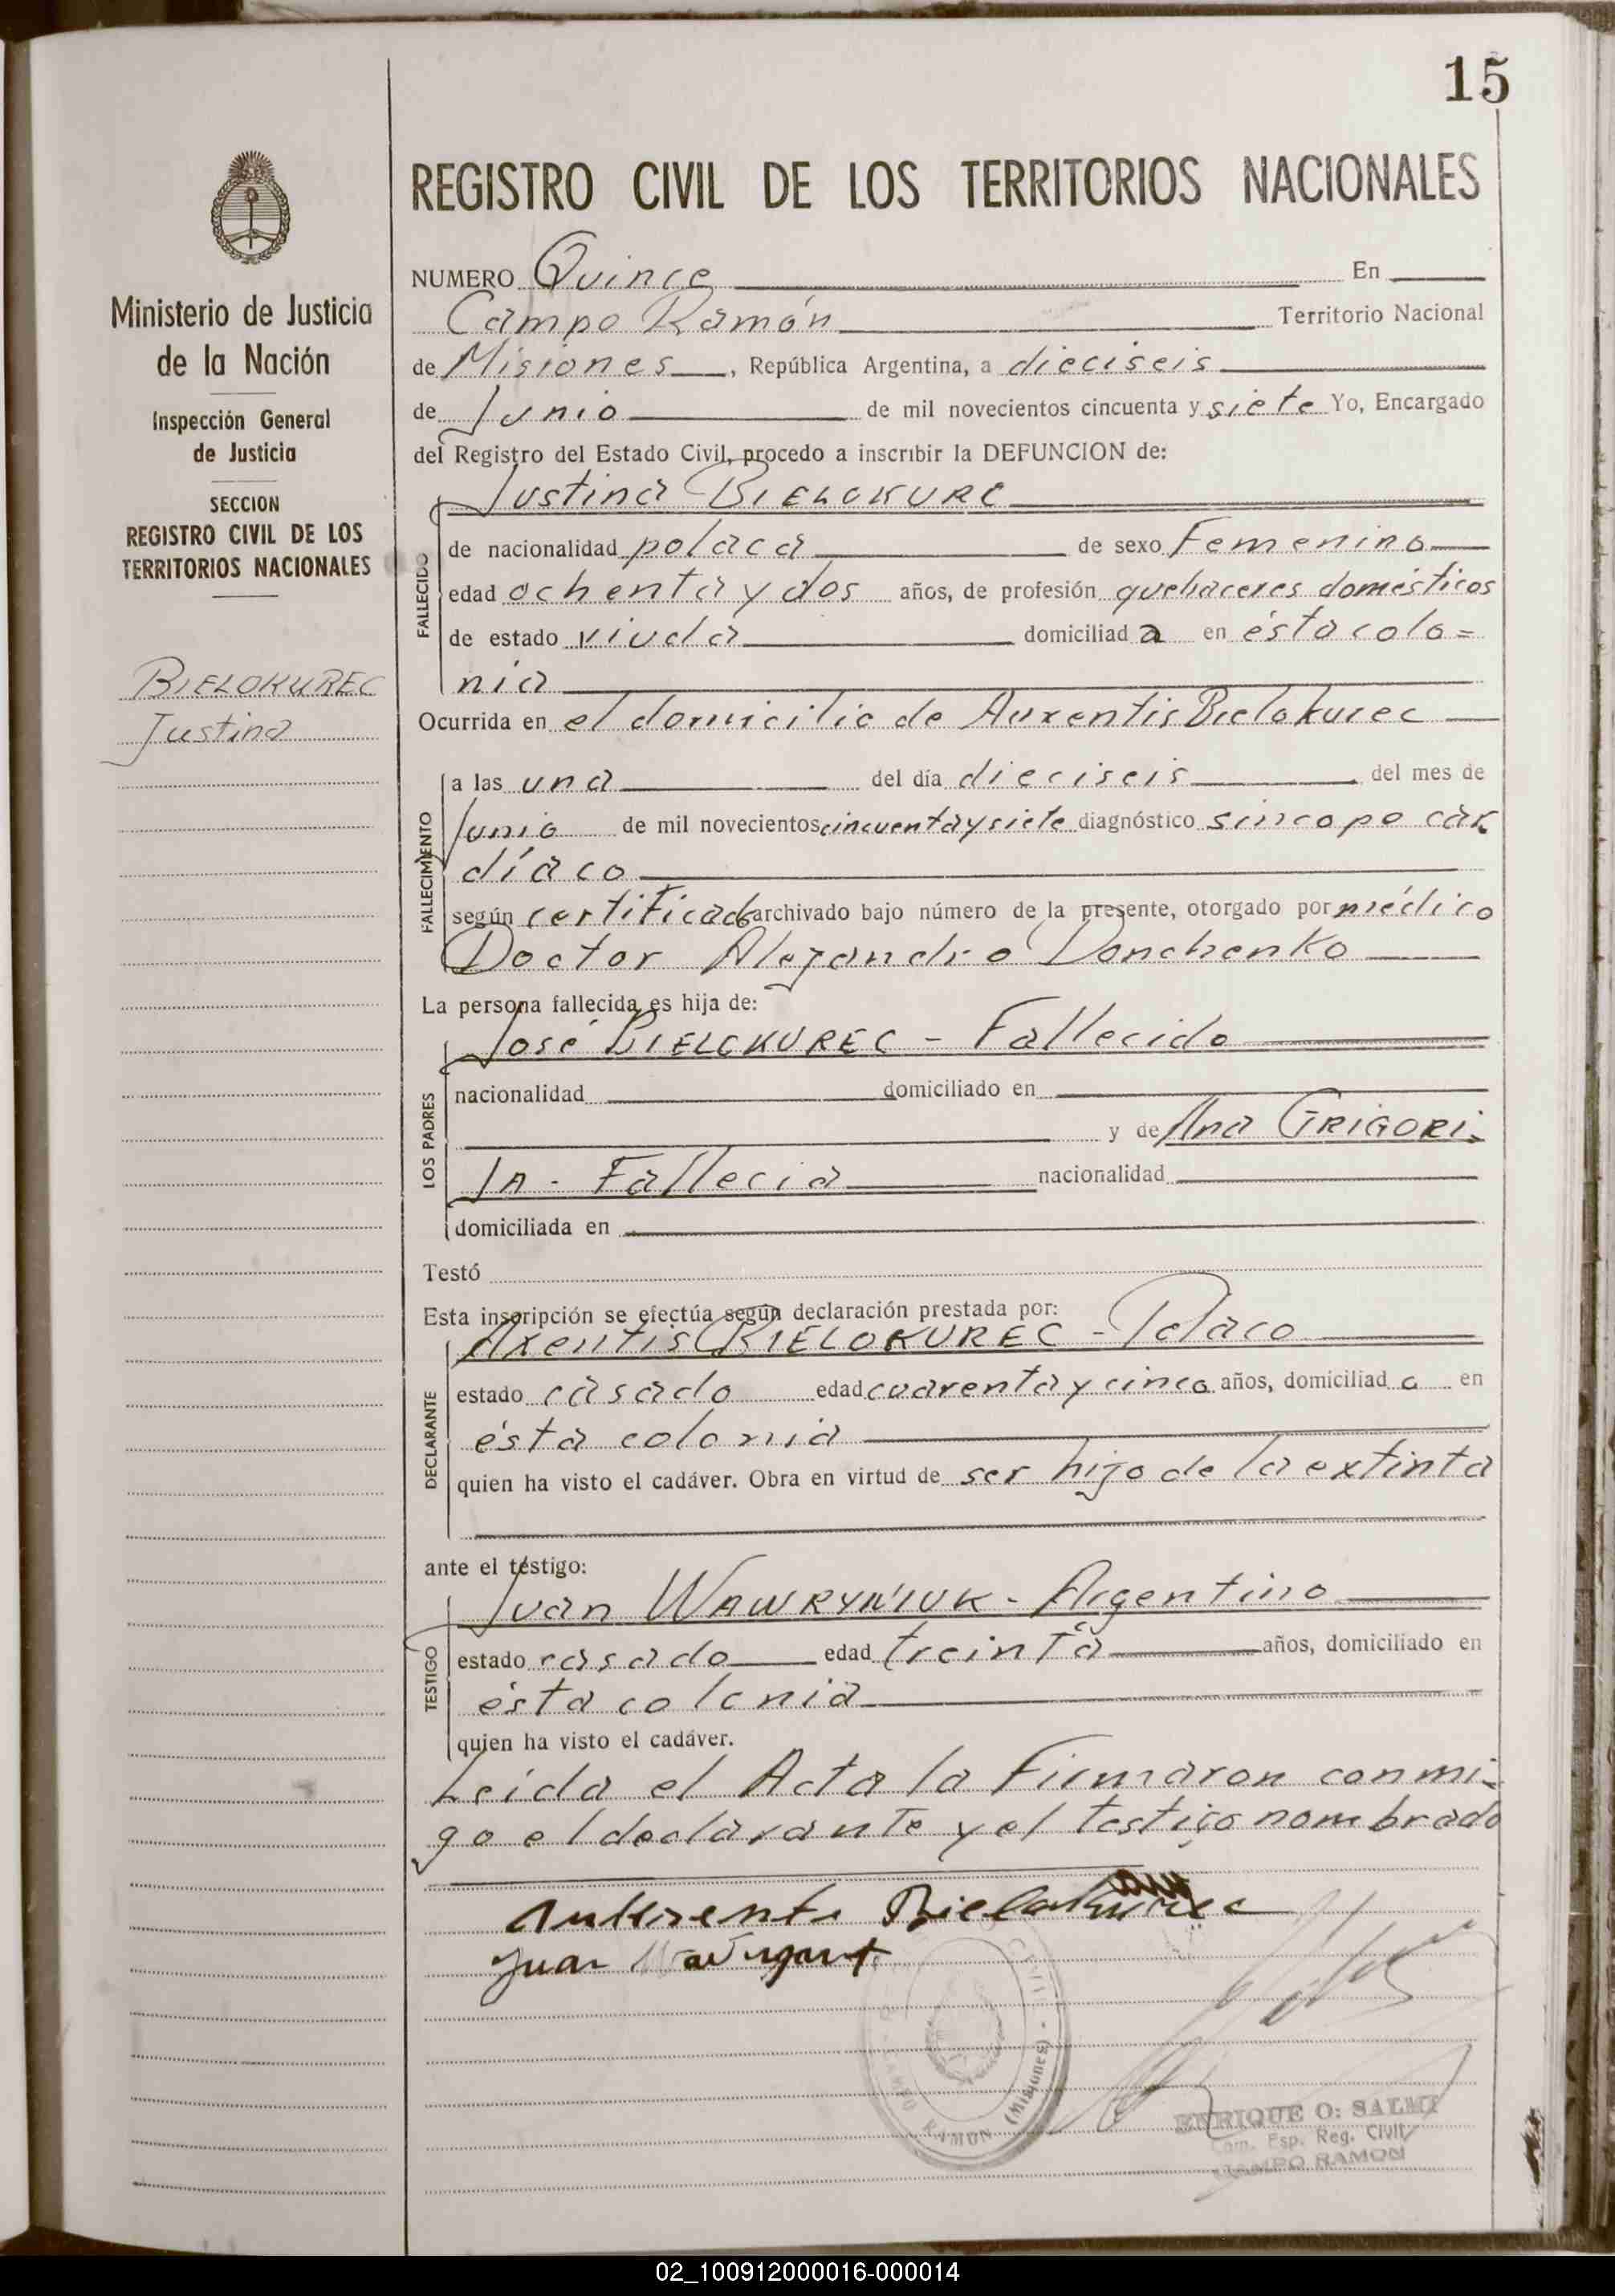 15
REGISTRO CIVIL DE LOS TERRITORIOS NACIONALES
Ministerio de Justicia
de la Nación
Inspección General
de Justicia
SECCION
REGISTRO CIVIL DE LOS
TERRITORIOS NACIONALES
BIELOKUREC
Justina
NUMERO Quince En
Campo Ramón Territorio Nacional
de Misiones, República Argentina, a dieciseis
de Junio de mil novecientos cincuenta y siete Yo, Encargado
del Registro del Estado Civil, procedo a inscribir la DEFUNCION de:
Justina BIELOKUREC
FALLECIDO
de nacionalidad polaca de sexo Femenino
edad ochenta y dos años, de profesión quehaceres domésticos
de estado viuda domiciliad a en ésta colo=
nia
Ocurrida en el domicilio de Auxentis Bielokurec
FALLECIMIENTO
a las una del día dieciseis del mes de
Junio de mil novecientos cincuenta y siete diagnóstico sincope car
díaco
según certificado archivado bajo número de la presente, otorgado por médico
Doctor Alejandro Donchenko
La persona fallecida es hija de:
José BIELOKUREC - Fallecido
LOS PADRES
nacionalidad domiciliado en
y de Ana GRIGORI-
JA - Fallecia nacionalidad
domiciliada en
Testó
Esta inscripción se efectúa según declaración prestada por:
Axentis BIELOKUREC - Polaco
DECLARANTE
estado casado edad cuarenta y cinco años, domiciliad o en
ésta colonia
quien ha visto el cadáver. Obra en virtud de ser hijo de la extinta
ante el testigo:
Juan WAWRYNIUK - Argentino
TESTIGO
estado casado edad treinta años, domiciliado en
ésta colonia
quien ha visto el cadáver.
Leída el Acta la Firmaron conmi-
go el declarante y el testigo nombrado
Bielokurec
Juan
CIVIL - CAMPO RAMON (Misiones)
ENRIQUE O. SALMI
Com. Esp. Reg. Civil
CAMPO RAMON
02_100912000016-000014